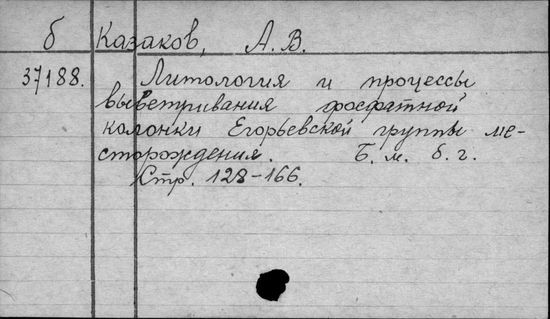 б Казаков, А. В.
37188. Литология и процессы
выветривания фосфатной
колонки Егорьевской группы ме-
сторождения. Б. м. б. г.
Стр. 128-166.